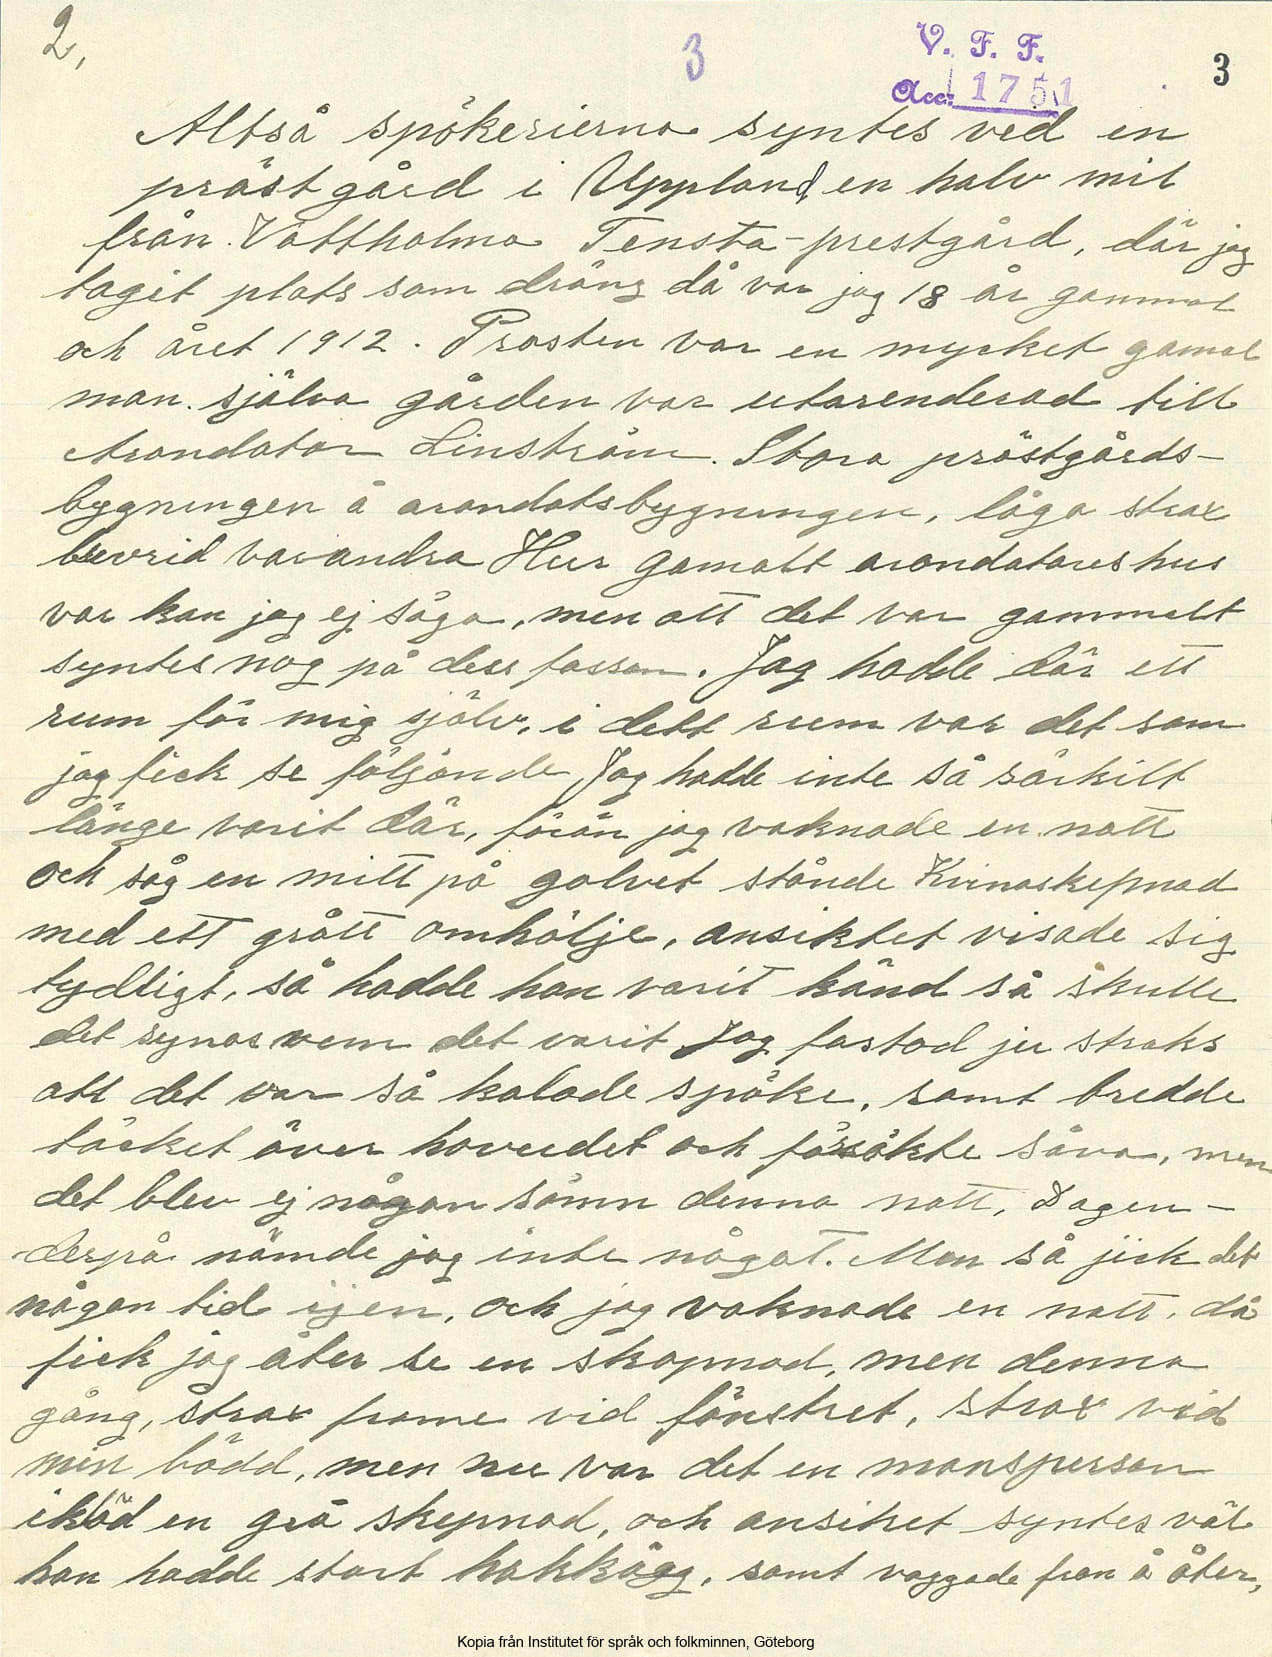 2,
3
V. F. F.
Acc: 1751
3
Altså spökerierna syntes ved en
prästgård i Uppland, en halv mil
från Vattholma Tensta-prestgård, där jag
tagit plats som dräng då var jag 18 år gammal
och året 1912. Prosten var en mycket gamal
man. själva gården var utarenderad till
Arandator Linström. Stora prästgårds-
bygningen å arandatsbygningen, låga strax
brevrid varandra Hur gamalt arandatores hus
var kan jag ej säga, men att det var gammalt
syntes nog på dess fasson. Jag hadde där ett
rum för mig själv, i dett rum var det som
jag fick se följande. Jag hadde inte så särkilt
länge varit där, förän jag vaknade en natt
och såg en mitt på golvet stånde Kvinoskepnad
med ett grått omhölje, ansiktet visade sig
tydligt, så hadde han varit känd så skulle
det synas vem det varit Jag fastod ju straks
att det var så kalade spöke, samt bredde
täcket över hovudet och försökte såva, men
det blev ej någon sömn denna natt, Dagen-
derpå nämde jag inte något. Men så jick det
någon tid ijen, och jag vaknade en natt, då
fick jag åter se en skapnad, men denna
gång, strax frame vid fönstret, strax vid
min bädd, men nu var det en mansperson
iklöd en grå skepnad, och ansiket syntes väl
han hadde stort hakkägg, samt vaggade fran å åter,
Kopia från Institutet för språk och folkminnen, Göteborg